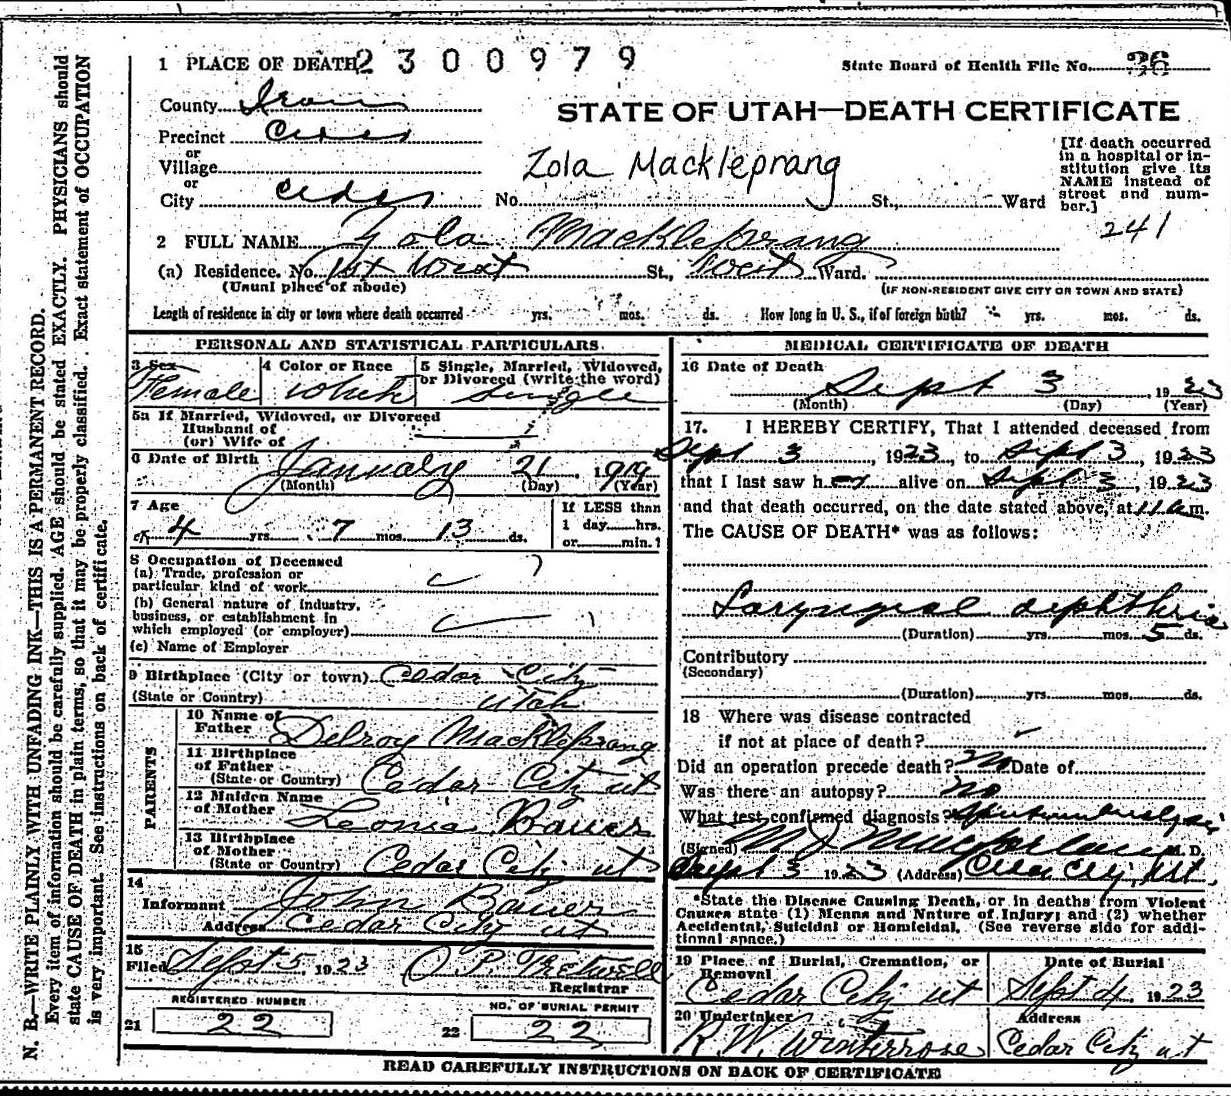 1 PLACE OF DEATH 2300979
State Board of Health File No. 26
County Iron
STATE OF UTAH—DEATH CERTIFICATE
Precinct Cedar
or
Village
or
City Cedar No. St., Ward
Zola Mackleprang
[If death occurred
in a hospital or in-
stitution give its
NAME instead of
street and num-
ber.]
241
2 FULL NAME Zola Mackleprang
(a) Residence. No. West St., West Ward.
(Usual place of abode) (IF NON-RESIDENT GIVE CITY OR TOWN AND STATE)
Length of residence in city or town where death occurred yrs. mos. ds. How long in U. S., if of foreign birth? yrs. mos. ds.
PERSONAL AND STATISTICAL PARTICULARS.
3 Sex
Female
4 Color or Race
White
5 Single, Married, Widowed,
or Divorced (write the word)
Single
5a If Married, Widowed, or Divorced
Husband of
(or) Wife of
6 Date of Birth January 21, 1919
(Month) (Day) (Year)
7 Age
4 yrs. 7 mos. 13 ds.
If LESS than
1 day hrs.
or min.?
8 Occupation of Deceased
(a) Trade, profession or
particular kind of work
(b) General nature of industry,
business, or establishment in
which employed (or employer)
(c) Name of Employer
9 Birthplace (City or town) Cedar City
(State or Country) Utah
PARENTS
10 Name of
Father Delroy Mackleprang
11 Birthplace
of Father
(State or Country) Cedar City ut
12 Maiden Name
of Mother Leonia Bauer
13 Birthplace
of Mother
(State or Country) Cedar City ut
14
Informant John Bauer
Address Cedar City ut
15
Filed Sept 5, 1923
Registrar
REGISTERED NUMBER
21 22
NO. OF BURIAL PERMIT
22 22
MEDICAL CERTIFICATE OF DEATH
16 Date of Death
Sept 3, 1923
(Month) (Day) (Year)
17. I HEREBY CERTIFY, That I attended deceased from
Sept 3, 1923, to Sept 3, 1923
that I last saw her alive on Sept 3, 1923
and that death occurred, on the date stated above, at 11 a m.
The CAUSE OF DEATH* was as follows:
Laryngial diphtheria
(Duration) yrs. mos. 5 ds.
Contributory
(Secondary)
(Duration) yrs. mos. ds.
18 Where was disease contracted
if not at place of death?
Did an operation precede death? no Date of
Was there an autopsy? no
What test confirmed diagnosis?
(Signed) M. D.
Sept 3 1923 (Address) Cedar City, Ut.
*State the Disease Causing Death, or in deaths from Violent
Causes state (1) Means and Nature of Injury; and (2) whether
Accidental, Suicidal or Homicidal. (See reverse side for addi-
tional space.)
19 Place of Burial, Cremation, or
Removal
Cedar City ut
Date of Burial
Sept 4, 1923
20 Undertaker
R. W. Winterrose
Address
Cedar City ut
READ CAREFULLY INSTRUCTIONS ON BACK OF CERTIFICATE
N. B.—WRITE PLAINLY WITH UNFADING INK—THIS IS A PERMANENT RECORD.
Every item of information should be carefully supplied. AGE should be stated EXACTLY. PHYSICIANS should
state CAUSE OF DEATH in plain terms, so that it may be properly classified. Exact statement of OCCUPATION
is very important. See instructions on back of certificate.